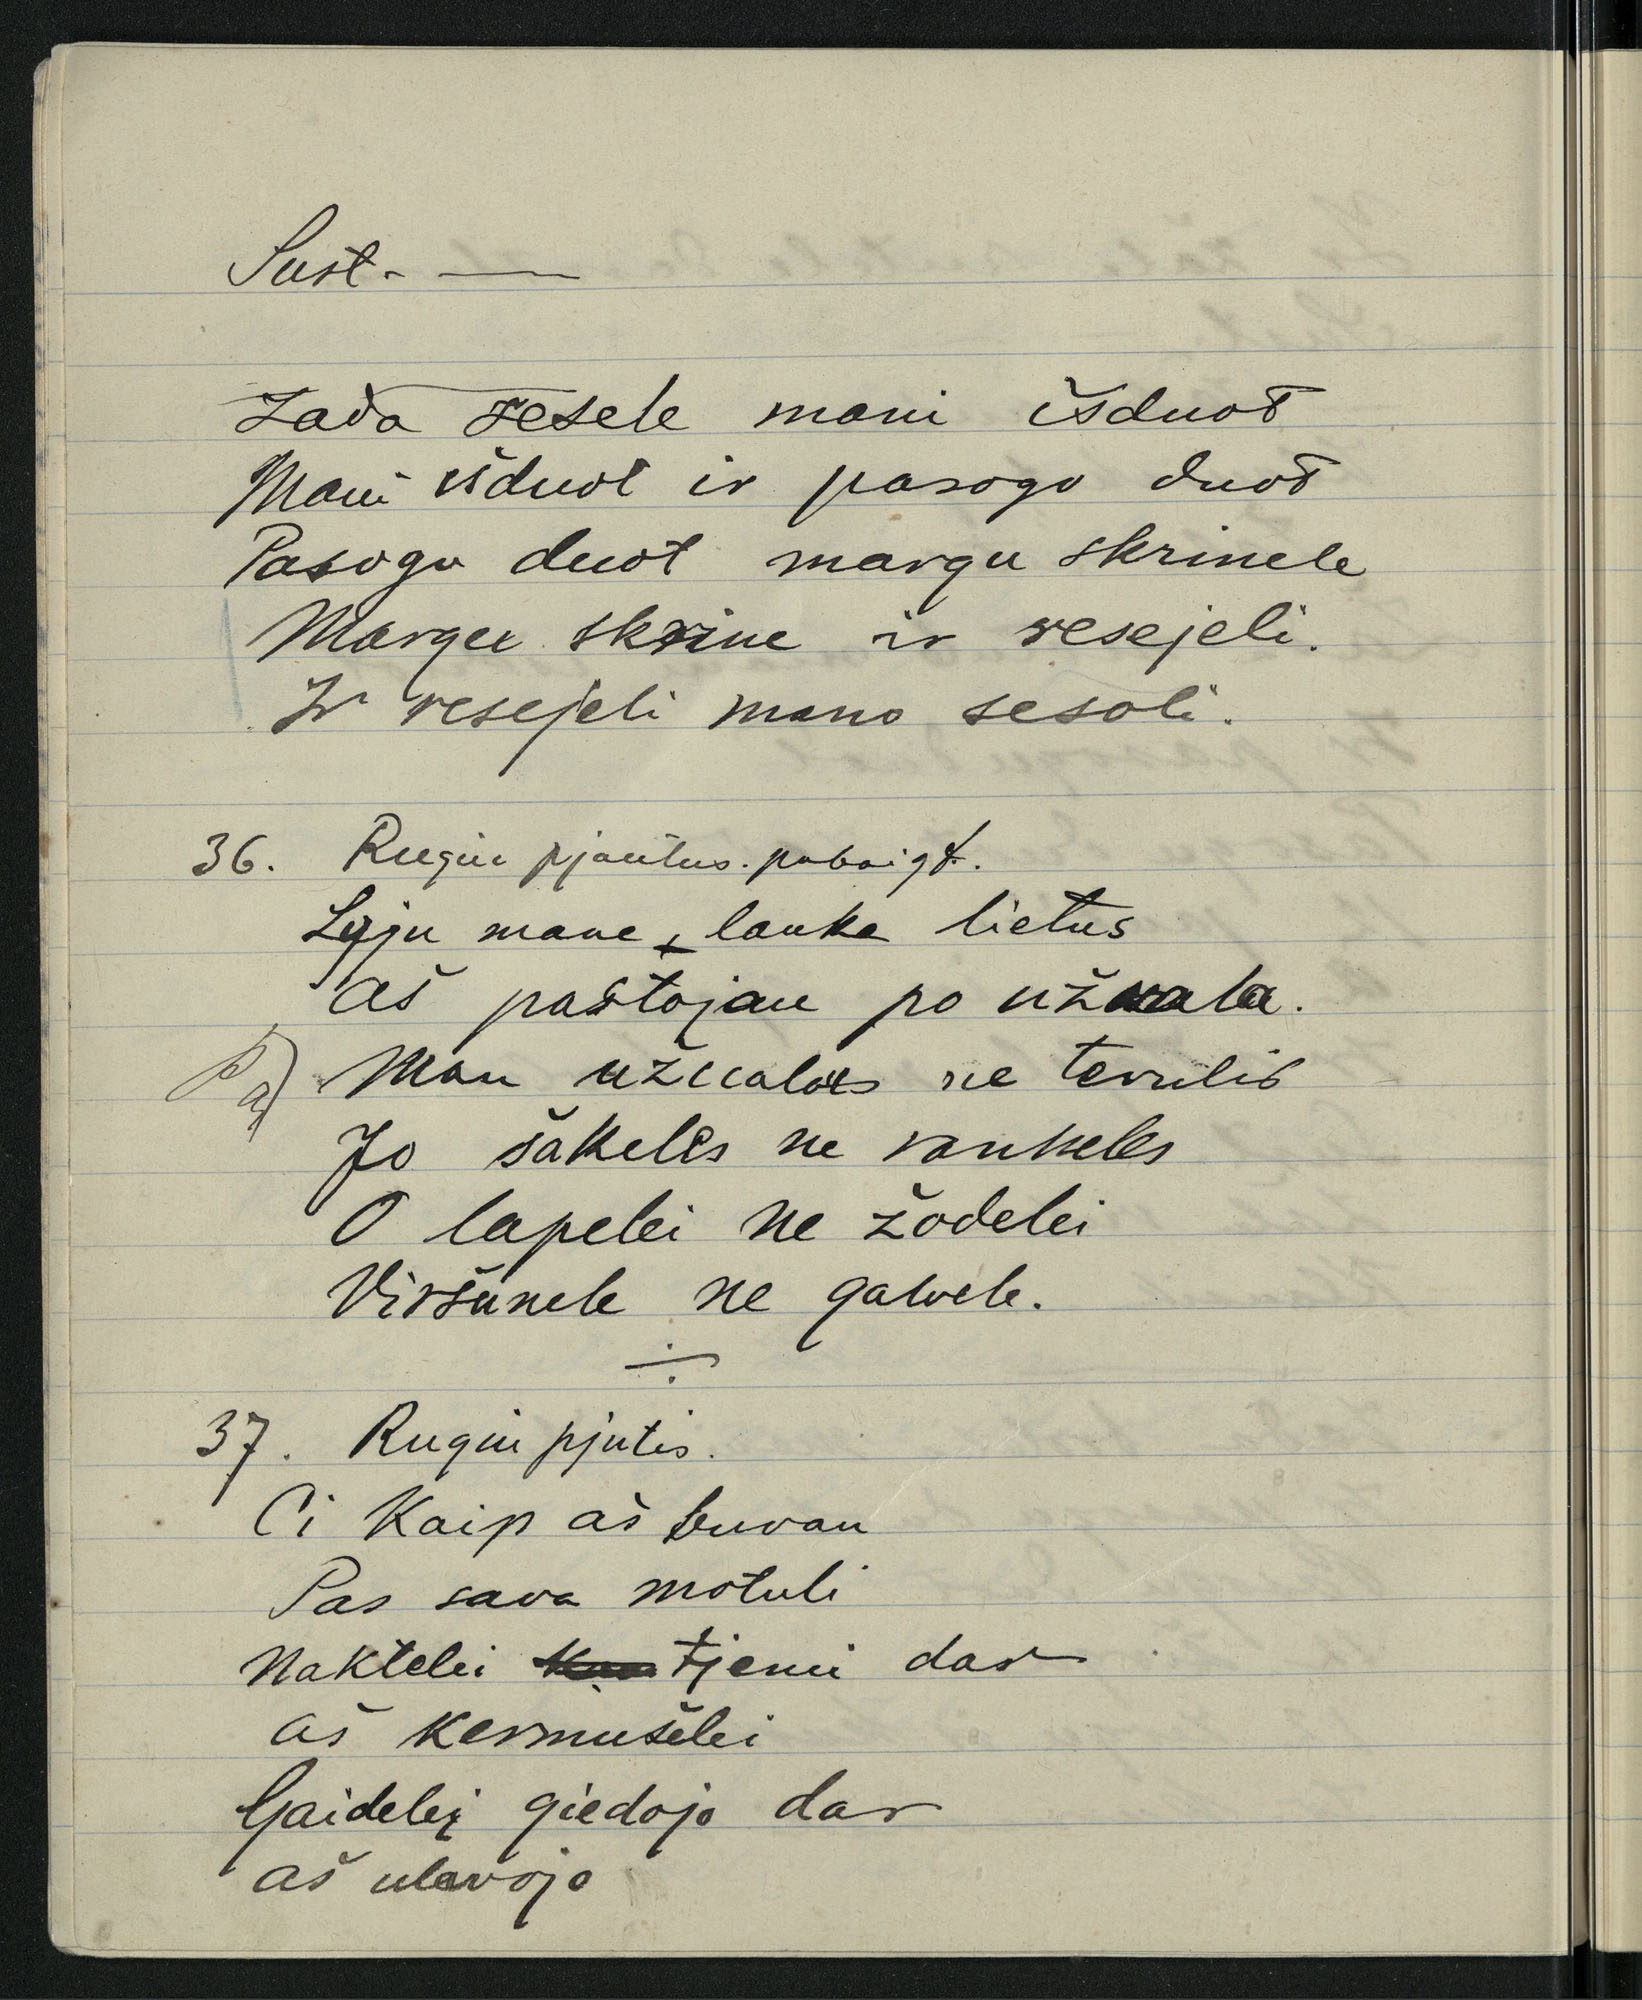 Sust. —
Zada sesele mani išduot
Mani išduot ir pasogo duot
Pasogu duot margu skrinele
Margu skrine ir resejeli.
Ir resejeli mano sesoli.
36. Rugiu pjautus. pabaigt.
Lyju mane, lauke lietus
aš pastojau po užuala.
Man užualas ne tevulis
Jo šakeles ne rankeles
O lapelei ne žodelei
Viršunele ne galvele.
37. Rugiu pjutis.
Ci Kaip aš buvau
Pas sava motuli
Naktelei tjemi dar
aš kermušelei
Gaidelei giedojo dar
aš ulavojo